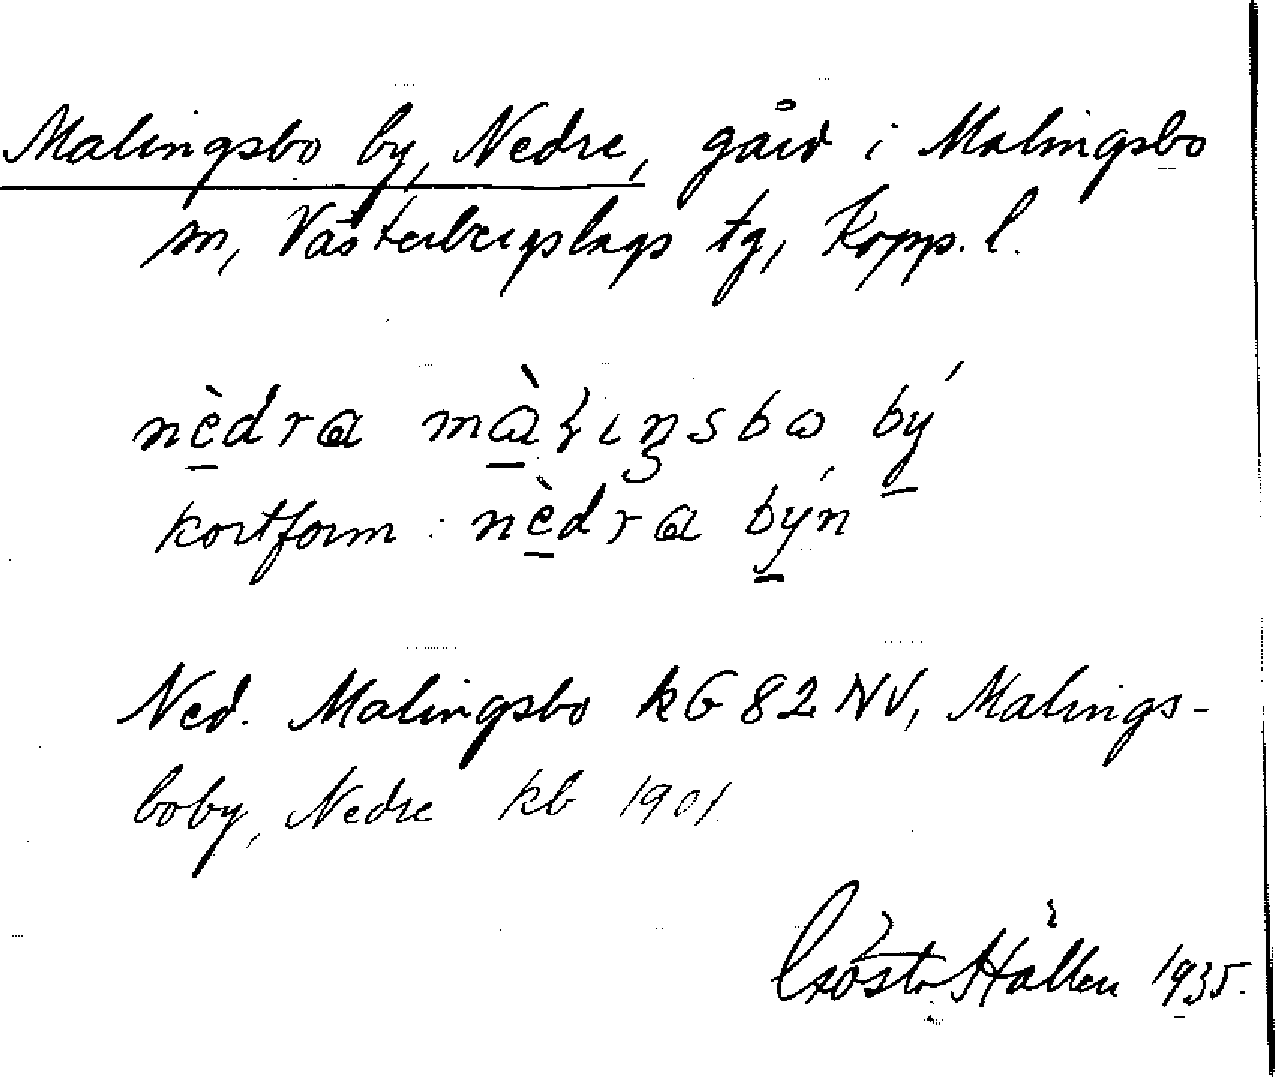 Malingsbo by, Nedre, gård i Malingsbo
sn, Västerbergslags tg, Kopp. l.
nèdra màłıŋsbω bý
kortform: nèdra býn
Ned. Malingsbo kG 82 NV, Malings-
boby, Nedre kb 1901
Gösta Hallen 1935.